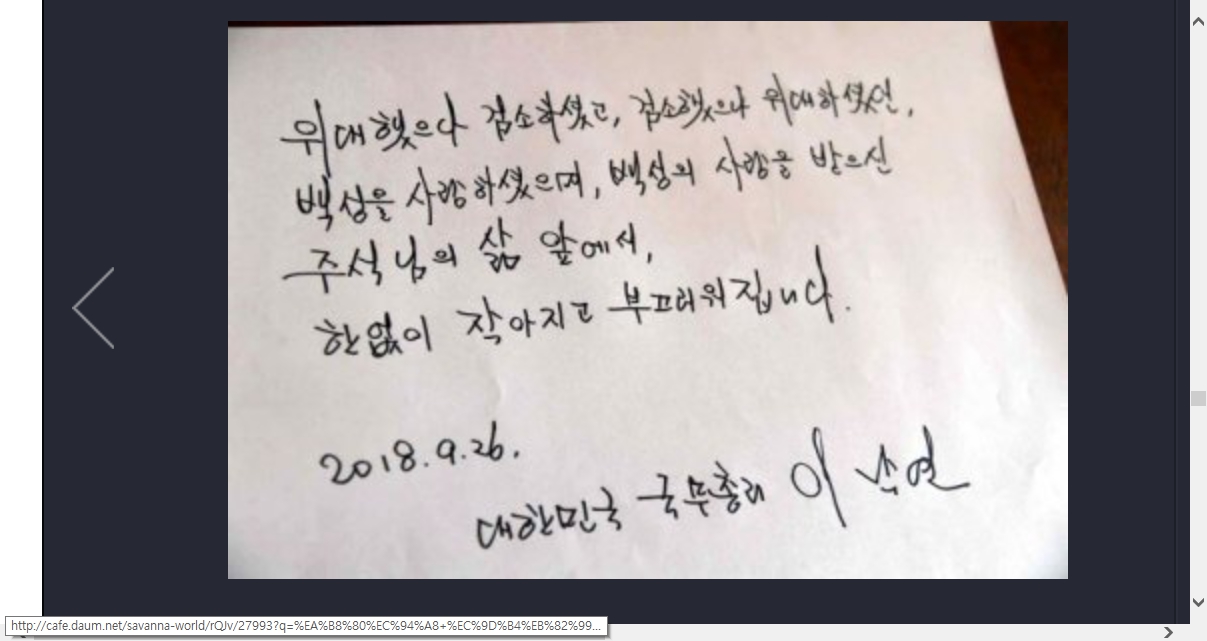 위대했으나 검소하셨고, 검소했으나 위대하셨던,
백성을 사랑하셨으며, 백성의 사랑을 받으신
주석님의 삶 앞에서,
한없이 작아지고 부끄러워집니다.
2018.9.26.
대한민국 국무총리 이낙연
http://cafe.daum.net/savanna-world/rQJv/27993?q=%EA%B8%80%EC%94%A8+%EC%9D%B4%EB%82%99...